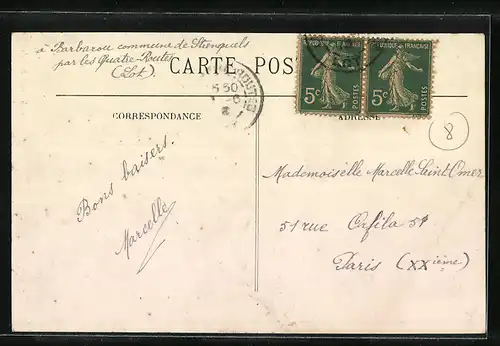 à Barbarou commune de Strenquels
par les Quatre-Routes
(Lot)
CARTE POS
5 50
RÉPUBLIQUE FRANÇAISE
5c
POSTES
RÉPUBLIQUE FRANÇAISE
5c
POSTES
CORRESPONDANCE
ADRESSE
8
Bons baisers.
Marcelle
Mademoiselle Marcelle Saint Omer
51 rue Orfila 51
Paris (XXième)